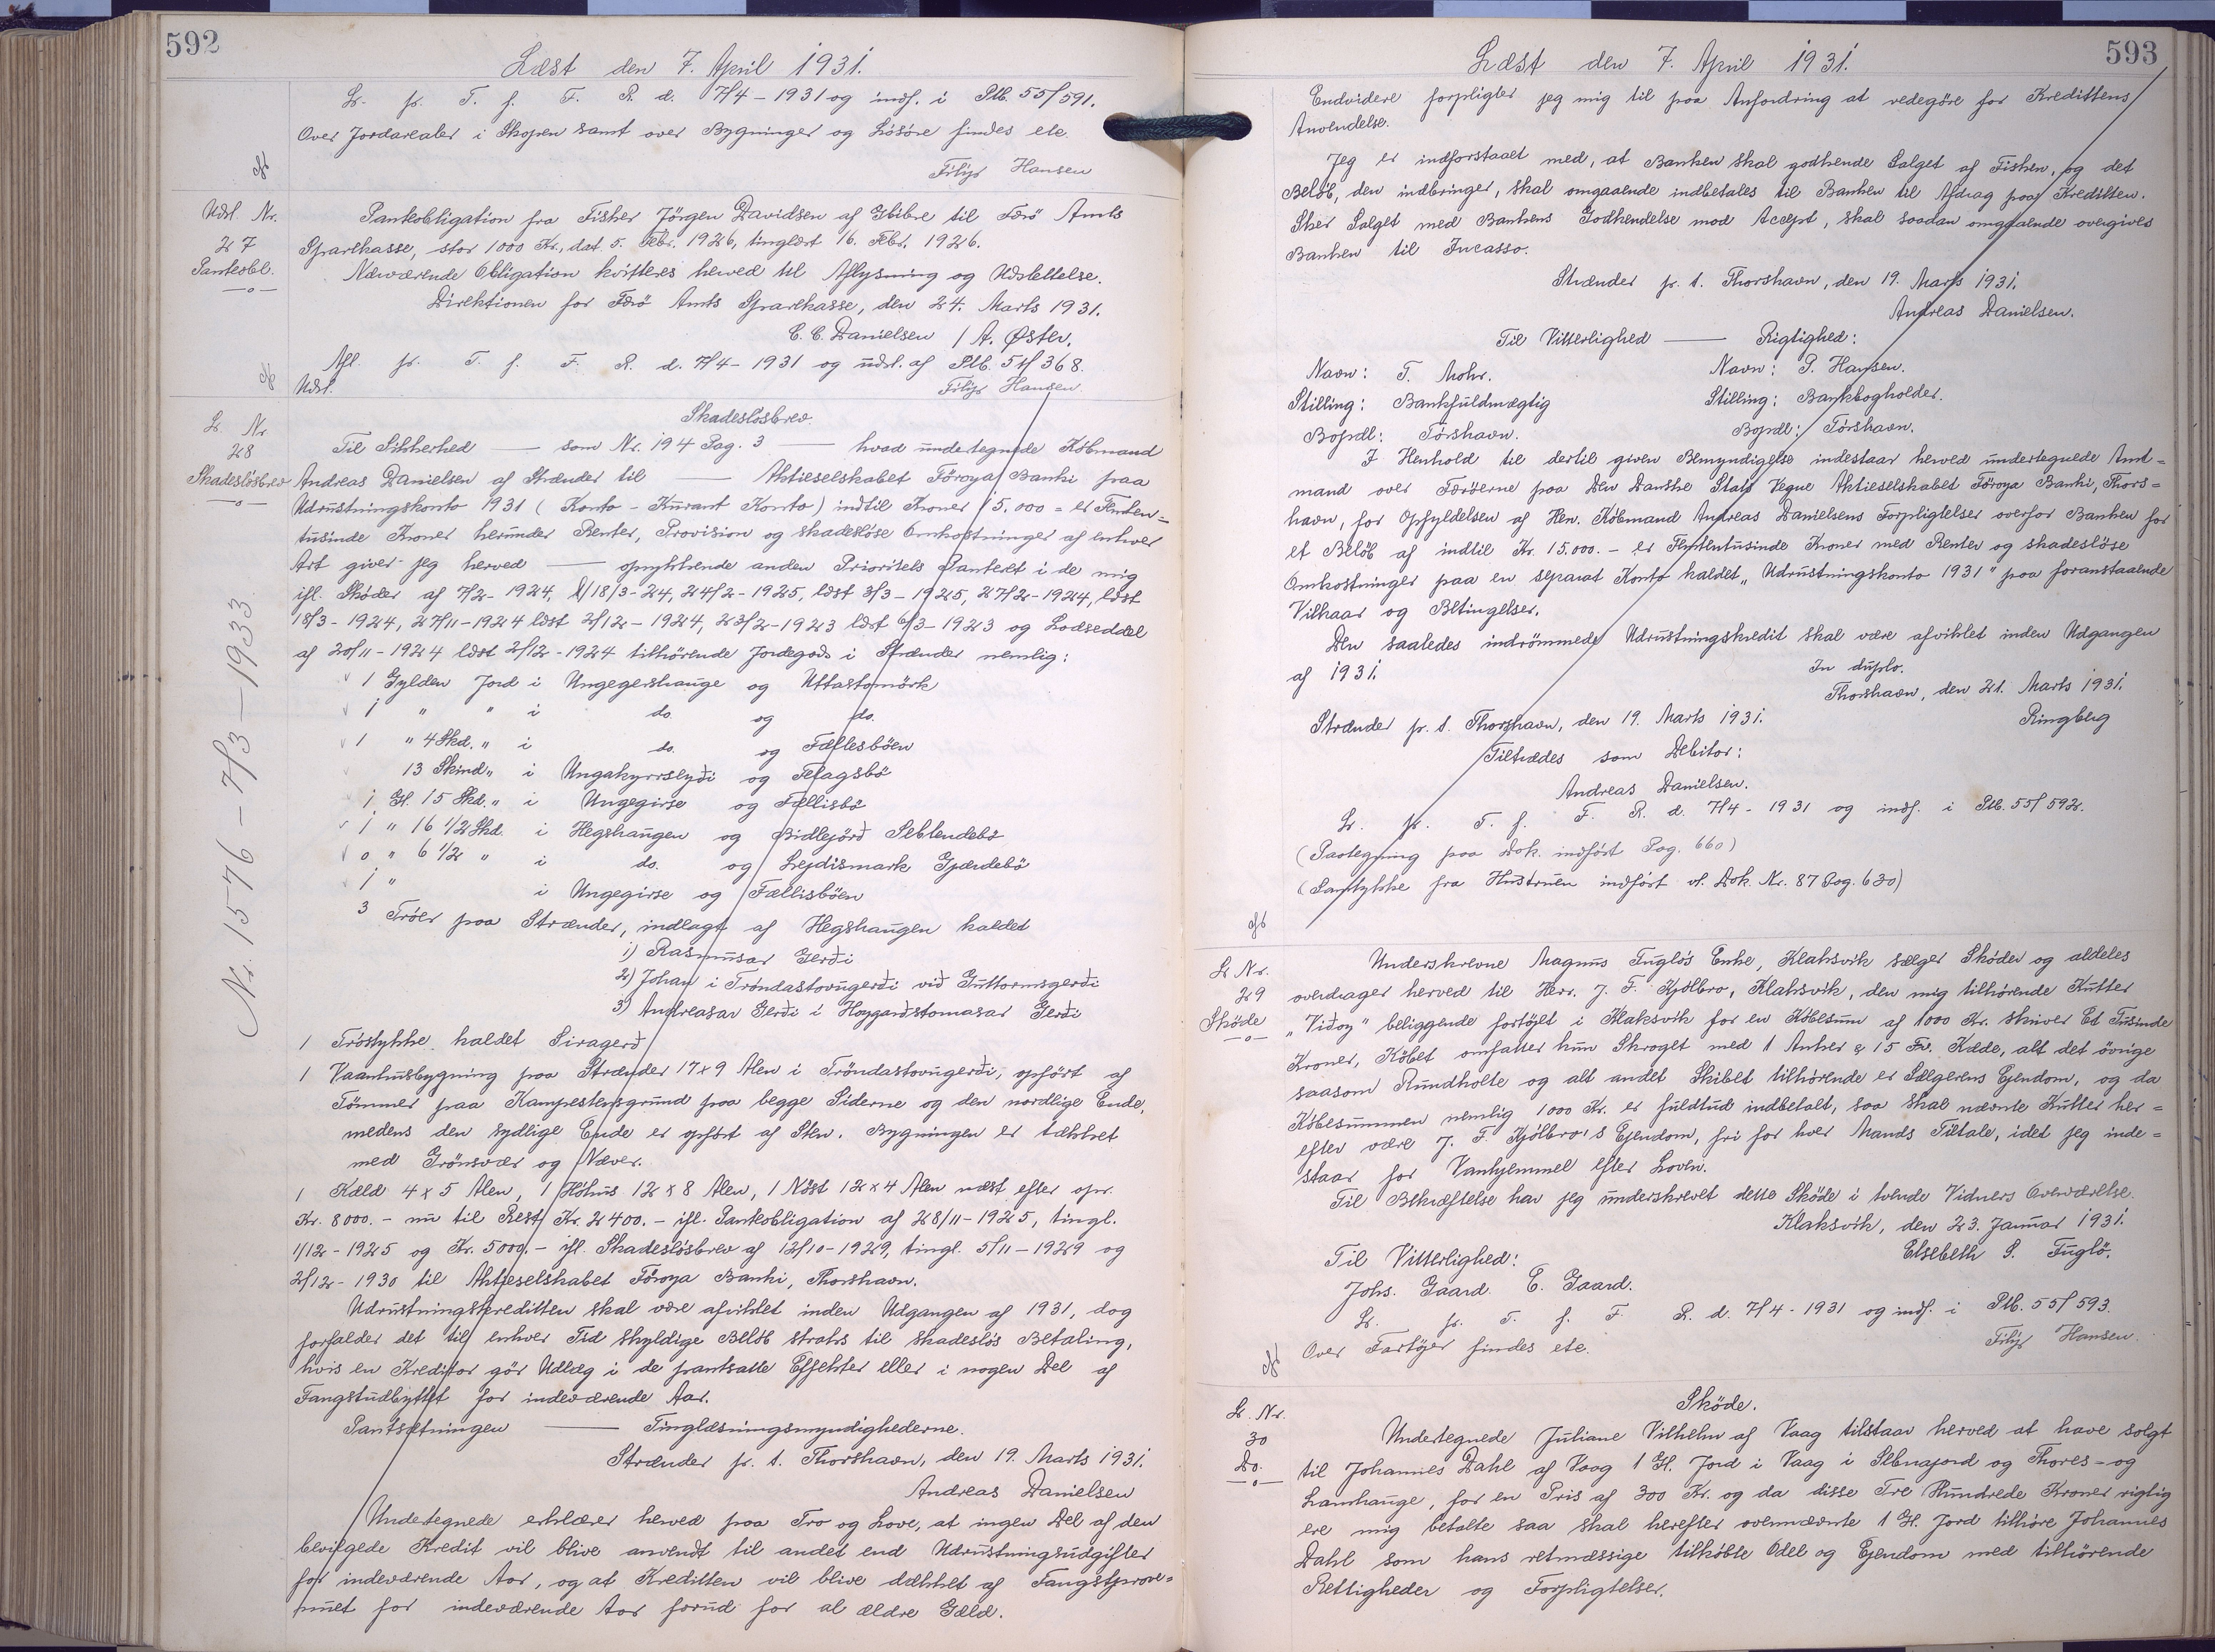 592
Læst den 7. April 1931.
L. pr. T. f. F. R. d. 7/4-1931 og indf. i Ptb. 55/591.
Over Jordarealer i Skopen samt over Bygninger og Løsøre findes etc.
Filip Hansen
Udsl. Nr.
27
Panteobl.
Panteobligation fra Fisker Jörgen Davidsen af Glibre til Færö Amts
Sparekasse, stor 1000 Kr., dat 5. Febr. 1926, tinglæst 16. Febr. 1926.
Nærværende Obligation kvitteres herved til Aflysning og Udslettelse.
Direktionen for Færö Amts Sparekasse, den 24. Marts 1931.
C. C. Danielsen / A. Østen.
Afl. pr. T. f. F. R. d. 7/4-1931 og udsl. af Ptb. 54/368.
Udsl.
Filip Hansen
L. Nr
28
Skadeslösbrev
Nr. 1576 - 7/3 - 1933
Skadeslösbrev.
Til Sikkerhed — som Nr. 194 Pag. 3 — hvad undertegnede Købmand
Andreas Danielsen af Strænder til — Aktieselskabet Föroya Banki paa
Udrustningskonto 1931 (Konto-Kurant Konto) indtil Kroner 15.000 = er Femten=
tusinde Kroner herunder Renter, Provision og skadesløse Omkostninger af enhver
Art giver jeg herved — oprykkende anden Prioritets Panteret i de mig
ifl. Skøder af 7/2-1924, l/18/3-24, 24/2-1925, læst 3/3-1925, 27/2-1924, læst
18/3-1924, 27/11-1924 læst 2/12-1924, 23/2-1923 læst 6/3-1923 og Lodseddel
af 20/11-1924 læst 2/12-1924 tilhörende Jordegods i Strænder nemlig:
1 Gylden Jord i Ungegershauge og Uttastomörk
1 " " i do. og do.
1 " 4 Skd. " i do. og Fæflesböen
13 Skind " i Ungakyrrseyði og Felagsbö
1 Gl. 15 Skd. " i Ungegirse og Fællisbö
1 " 16 1/2 Skd. i Hegshaugen og Bidlejörð Seblendebö
0 " 6 1/2 " i do. og Lejdismark Gjærdebö
1 " i Ungegirse og Fællisböen
3 Tröer paa Strænder, indlagt af Hegshaugen kaldet
1) Rasmusar Gerði
2) Johan i Tröndastovugerði við Guttormsgerði
3) Andreasar Gerði i Hoygardstomasar Gerði
1 Tröstykke kaldet Siragerð
1 Vaanhusbygning paa Strænder 17 x 9 Alen i Tröndastovugerði, opført af
Tömmer paa Kampestensgrund paa begge Siderne og den nordlige Ende,
medens den sydlige Ende er opført af Sten. Bygningen er tækket
med Grönsvær og Næver.
1 Kæld 4 x 5 Alen, 1 Höhus 12 x 8 Alen, 1 Nöst 12 x 4 Alen næst efter opr.
Kr. 8000.- nu til Rest Kr. 2400.- ifl. Panteobligation af 28/11-1925, tingl.
1/12-1925 og Kr. 5000.- ifl. Skadeslösbrev af 12/10-1929, tingl. 5/11-1929 og
2/12-1930 til Aktieselskabet Föroya Banki, Thorshavn.
Udrustningskreditten skal være afviklet inden Udgangen af 1931, dog
forfalder det til enhver Tid skyldige Beløb straks til skadeslös Betaling,
hvis en Kreditor gör Udlæg i de pantsatte Effekter eller i nogen Del af
Fangstudbyttet for indeværende Aar.
Pantsætningen — Tinglæsningsmyndighederne.
Strænder p. t. Thorshavn, den 19. Marts 1931.
Andreas Danielsen
Undertegnede erklærer herved paa Tro og Love, at ingen Del af den
bevilgede Kredit vil blive anvendt til andet end Udrustningsudgifter
for indeværende Aar, og at Kreditten vil blive dækket af Fangstprove-
nuet for indeværende Aar forud for al ældre Gæld.
593
Læst den 7. April 1931.
Endvidere forpligter jeg mig til paa Anfordring at redegöre for Kredittens
Anvendelse.
Jeg er indforstaaet med, at Banken skal godkende Salget af Fisken, og det
Beløb, den indbringer, skal omgaaende indbetales til Banken til Afdrag paa Kreditten.
Sker Salget med Bankens Godkendelse mod Accept, skal saadan omgaaende overgives
Banken til Incasso.
Strænder p. t. Thorshavn, den 19. Marts 1931.
Andreas Danielsen.
Til Vitterlighed — Rigtighed:
Navn: T. Mohr. Navn: P. Hansen.
Stilling: Bankfuldmægtig Stilling: Bankbogholder.
Bopæl: Tórshavn. Bopæl: Tórshavn.
I Henhold til dertil given Bemyndigelse indestaar herved undertegnede Amt=
mand over Færöerne paa Den Danske Stats Vegne Aktieselskabet Föroya Banki, Thors=
havn, for Opfyldelsen af Hr. Købmand Andreas Danielsens Forpligtelser overfor Banken for
et Beløb af indtil Kr. 15.000.- er Femtentusinde Kroner med Renter og skadesløse
Omkostninger paa en separat Konto kaldet "Udrustningskonto 1931" paa foranstaaende
Vilkaar og Betingelser.
Den saaledes indrömmede Udrustningskredit skal være afviklet inden Udgangen
af 1931.
In duplo.
Thorshavn, den 21. Marts 1931.
Ringberg
Strænder p. t. Thorshavn, den 19. Marts 1931.
Tiltrædes som Debitor:
Andreas Danielsen.
L. pr. T. f. F. R. d. 7/4-1931 og indf. i Ptb. 55/592.
(Paategning paa Dok. indfört Pag. 660)
(Samtykke fra Hustruen indfört vl. Dok. Nr. 87 Pag. 630)
L Nr.
29
Sköde
Underskrevne Magnus Fuglös Enke, Klaksvik sælger Sköder og aldeles
overdrager herved til Herr. J. F. Kjölbro, Klaksvik, den mig tilhörende Kutter
"Viðoy" beliggende fortöjet i Klaksvik for en Købesum af 1000 Kr. skriver Et Tusinde
Kroner, Købet omfatter kun Skroget med 1 Anker & 15 Fv. Kæde, alt det övrige
saasom Rundholte og alt andet Skibet tilhörende er Sælgerens Ejendom, og da
Köbesummen nemlig 1000 Kr. er fuldtud indbetalt, saa skal nævnte Kutter her=
efter være J. F. Kjölbro's Ejendom, fri for hver Mands Tiltale, idet jeg inde=
staar for Vanhjemmel efter Loven.
Til Bekræftelse har jeg underskrevet dette Sköde i tvende Vidners Overværelse.
Klaksvik, den 23. Januar 1931.
Elsebeth S. Fuglö.
Til Vitterlighed:
Johs. Gaard. E. Gaard.
L. pr. T. f. F. R. d. 7/4-1931 og indf. i Ptb. 55/593.
Over Fartöjer findes etc.
Filip Hansen.
L. Nr.
30
Do.
Sköde.
Undertegnede Juliane Vilhelm af Vaag tilstaar herved at have solgt
til Johannes Dahl af Vaag 1 Gl. Jord i Vaag i Sebnajord og Thores- og
Lamhauge, for en Pris af 300 Kr. og da disse Tre Hundrede Kroner rigtig
ere mig betalte saa skal herefter ovennævnte 1 Gl. Jord tilhöre Johannes
Dahl som hans retmæssige tilköbte Odel og Ejendom med tilhörende
Rettigheder og Forpligtelser.